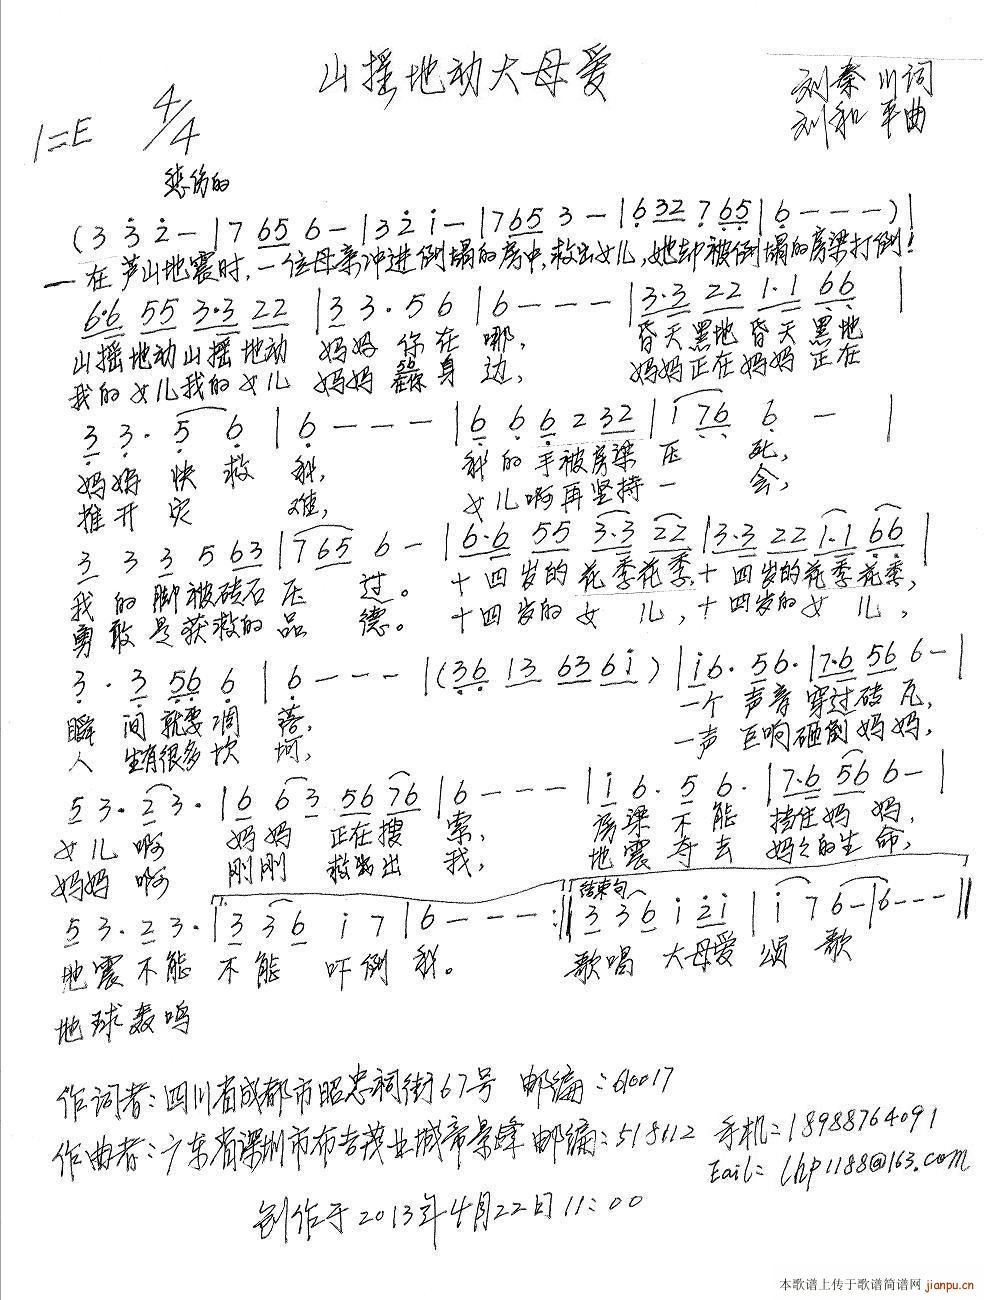 山摇地动大母爱
刘秦川词
刘和平曲
1=E 4/4
悲伤的
(3 3 2 - | 7 65 6 - | 3 2 1 - | 7 65 3 - | 6 32 7 65 | 6 - - - ) |
一在芦山地震时,一位母亲冲进倒塌的房中,救出女儿,她却被倒塌的房梁打倒!
6·6 55 3·3 22 | 3 3 · 5 6 | 6 - - - | 3·3 22 1·1 66 |
山摇地动山摇地动 妈妈 你在 哪, 昏天黑地昏天黑地
我的女儿我的女儿 妈妈 身边, 妈妈正在妈妈正在
3 3 · 5 6 | 6 - - - | 6 6 6 2 32 | 1 76 6 - |
妈妈 快救 我, 我的手被房梁 压 死,
推开 灾 难, 女儿啊再坚持 一 会,
3 3 3 5 63 | 7 65 6 - | 6·6 55 3·3 22 | 3·3 22 1·1 66 |
我的脚被砖石 压 过。 十四岁的花季花季,十四岁的花季花季,
勇敢是获救的 品 德。 十四岁的女 儿,十四岁的女 儿,
3 · 3 56 6 | 6 - - - | (36 13 63 61) | 16 · 56 · | 7·6 56 6 - |
瞬 间就要凋 落, 一个 声音 穿过砖 瓦,
人 生有很多坎 坷, 一声 巨响 砸倒妈妈,
5 3 · 2 3 · | 6 6 3 56 76 | 6 - - - | 1 6 · 5 6 · | 7·6 56 6 - |
女儿 啊 妈妈 正在搜 索, 房梁 不能 挡住妈 妈,
妈妈 啊 刚刚 救出 我, 地震 夺去 妈々的生命,
结束句
5 3 · 2 3 · | 3 3 6 1 7 | 6 - - - :‖ 3 3 6 1 21 | 1 7 6 - | 6 - - - ‖
地震不能 不能 吓倒 我。 歌唱 大母爱 颂 歌
地球轰鸣
作词者:四川省成都市昭忠祠街67号 邮编:610017
作曲者:广东省深圳市布吉茂业城帝景峰 邮编:518112 手机:18988764091
Eail: lhp1188@163.com
创作于2013年4月22日11:00
本歌谱上传于歌谱简谱网 jianpu.cn